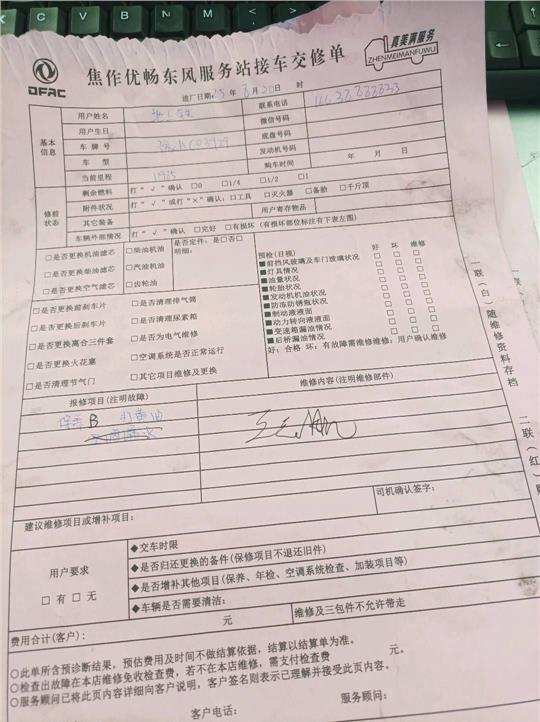 DFAC
焦作优畅东风服务站接车交修单
真美满服务
ZHENMEIMANFUWU
进厂日期: 年 月 日 时
基本信息
用户姓名 联系电话
用户生日 微信号码
车牌号 底盘号码
车型 发动机号码
当前里程 购车时间 年 月 日
修前状态
剩余燃料 打“√”确认 □0 □1/4 □1/2 □1
附件状况 打“√”或打“×”确认:□工具 □灭火器 □备胎 □千斤顶
其它装备 用户寄存物品
车辆外部情况 打“√”确认 □完好 □有损坏(有损坏部位标注有下表左图)
□是否更换机油滤芯 □柴油机油 是否定件:是□否□
□是否更换柴油滤芯 □汽油机油 明细:
□是否更换空气滤芯 □齿轮油
□是否更换前刹车片 □是否清理排气筒
□是否更换后刹车片 □是否清理尿素箱
□是否更换离合三件套 □是否为电气维修
□是否更换火花塞 □空调系统是否正常运行
□是否清理节气门 □其它项目维修及更换
预检(目视) 好 坏 维修
■前挡风玻璃及车门玻璃状况 □ □ □
■灯具情况 □ □ □
■油量状况 □ □ □
■轮胎状况 □ □ □
■发动机机油状况 □ □ □
■防冻防锈瓶状况 □ □ □
■制动液液面 □ □ □
■动力转向液液面 □ □ □
■变速箱漏油情况 □ □ □
■后桥漏油情况 □ □ □
好:合格 坏:有故障需维修维修:用户确认维修
报修项目(注明故障) 维修内容(注明维修部件)
保养B
司机确认签字:
建议维修项目或增补项目:
用户要求
□有 □无
◆交车时限
◆是否归还更换的备件(保修项目不退还旧件)
◆是否增补其他项目(保养、年检、空调系统检查、加装项目等)
◆车辆是否需要清洁:
费用合计(客户): 元 维修及三包件不允许带走
○此单所含预诊断结果,预估费用及时间不做结算依据,结算以结算单为准。
○检查出故障在本店维修免收检查费,若不在本店维修,需支付检查费 元。
○服务顾问已将此页内容详细向客户说明,客户签名则表示已理解并接受此页内容。
客户电话: 服务顾问:
一联(白)随维修资料存档
二联(红)